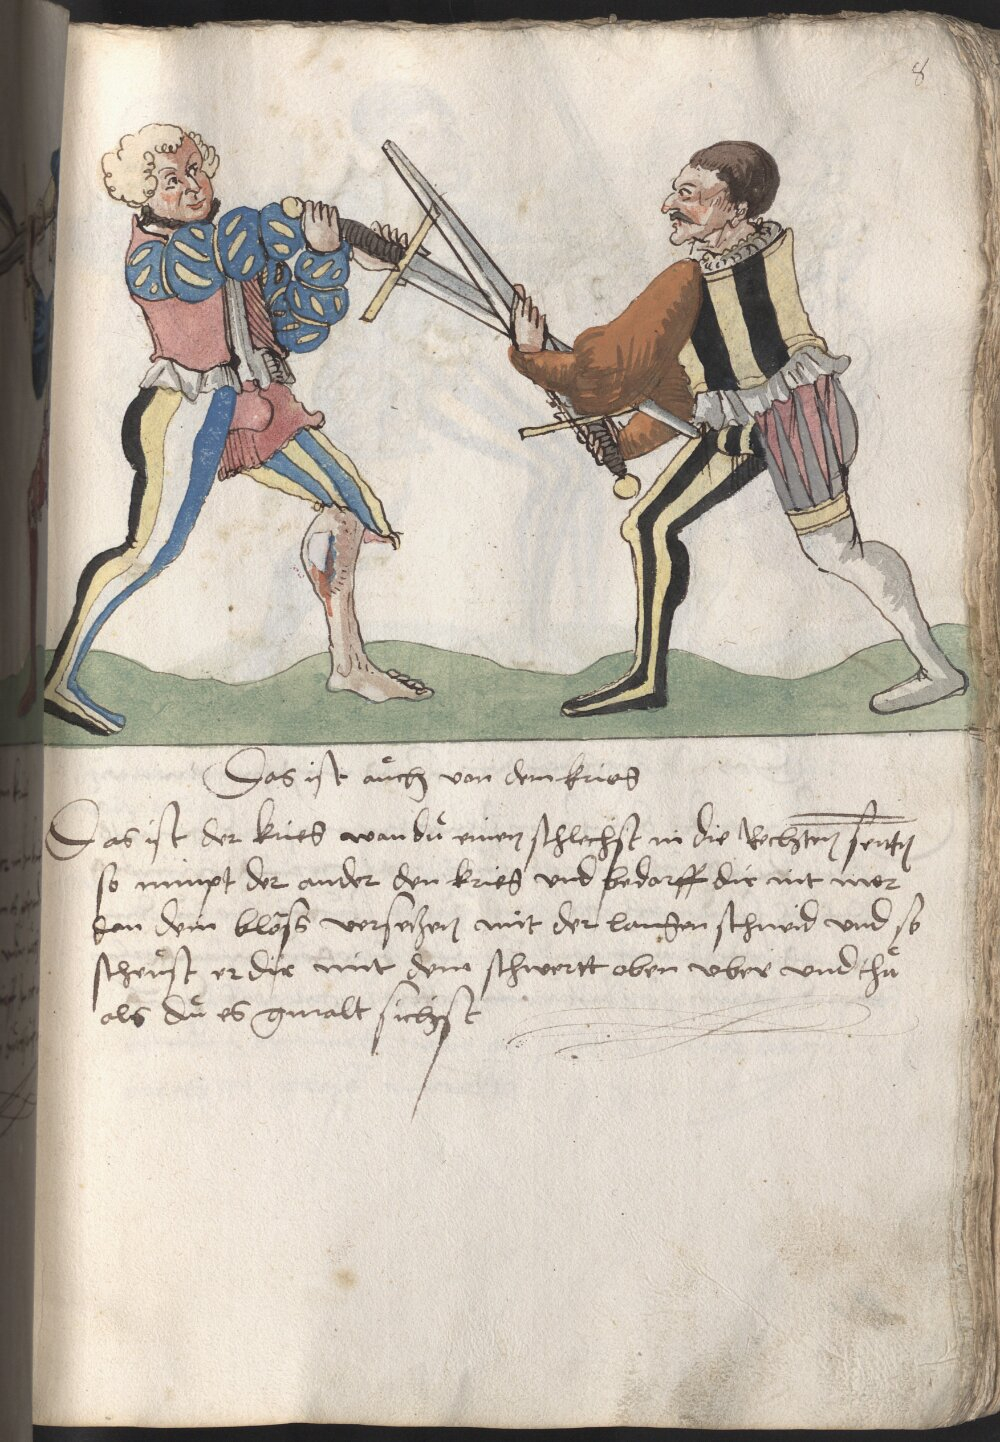 8
Das ist aůch von dem krieg
Das ist der krieg wan dů einen schlechst in die Rechten seyttñ
so nimpt der ander den krieg vnd bedarff dir nit mer
dan dein blöss versetzen mit der langen schneid vnd so
scheůst er dir mit dem schwertt oben vber vnd thů
als dů es gmalt sichst